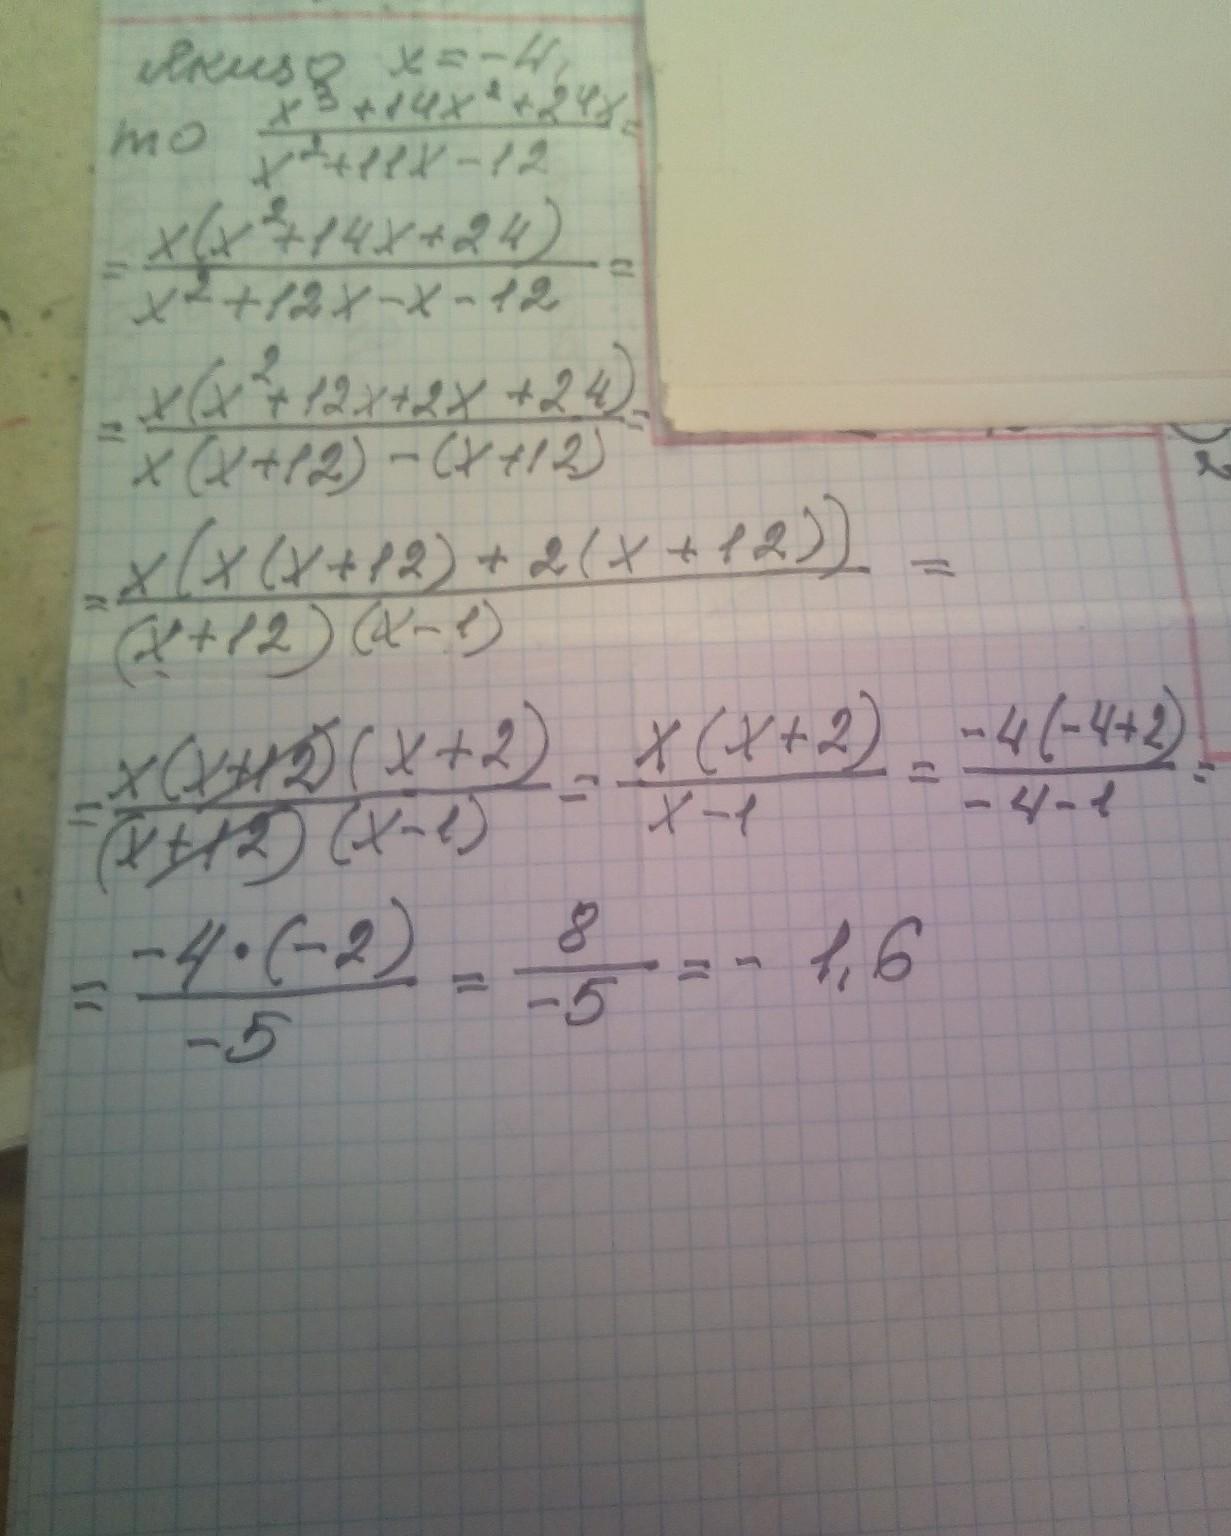 Якщо x = -4,
то (x³+14x²+24x)/(x²+11x-12) =
= x(x²+14x+24)/(x²+12x-x-12) =
= x(x²+12x+2x+24)/(x(x+12)-(x+12)) =
= x(x(x+12)+2(x+12))/((x+12)(x-1)) =
= x(x+12)(x+2)/((x+12)(x-1)) = x(x+2)/(x-1) = -4(-4+2)/(-4-1) =
= -4·(-2)/(-5) = 8/(-5) = - 1,6